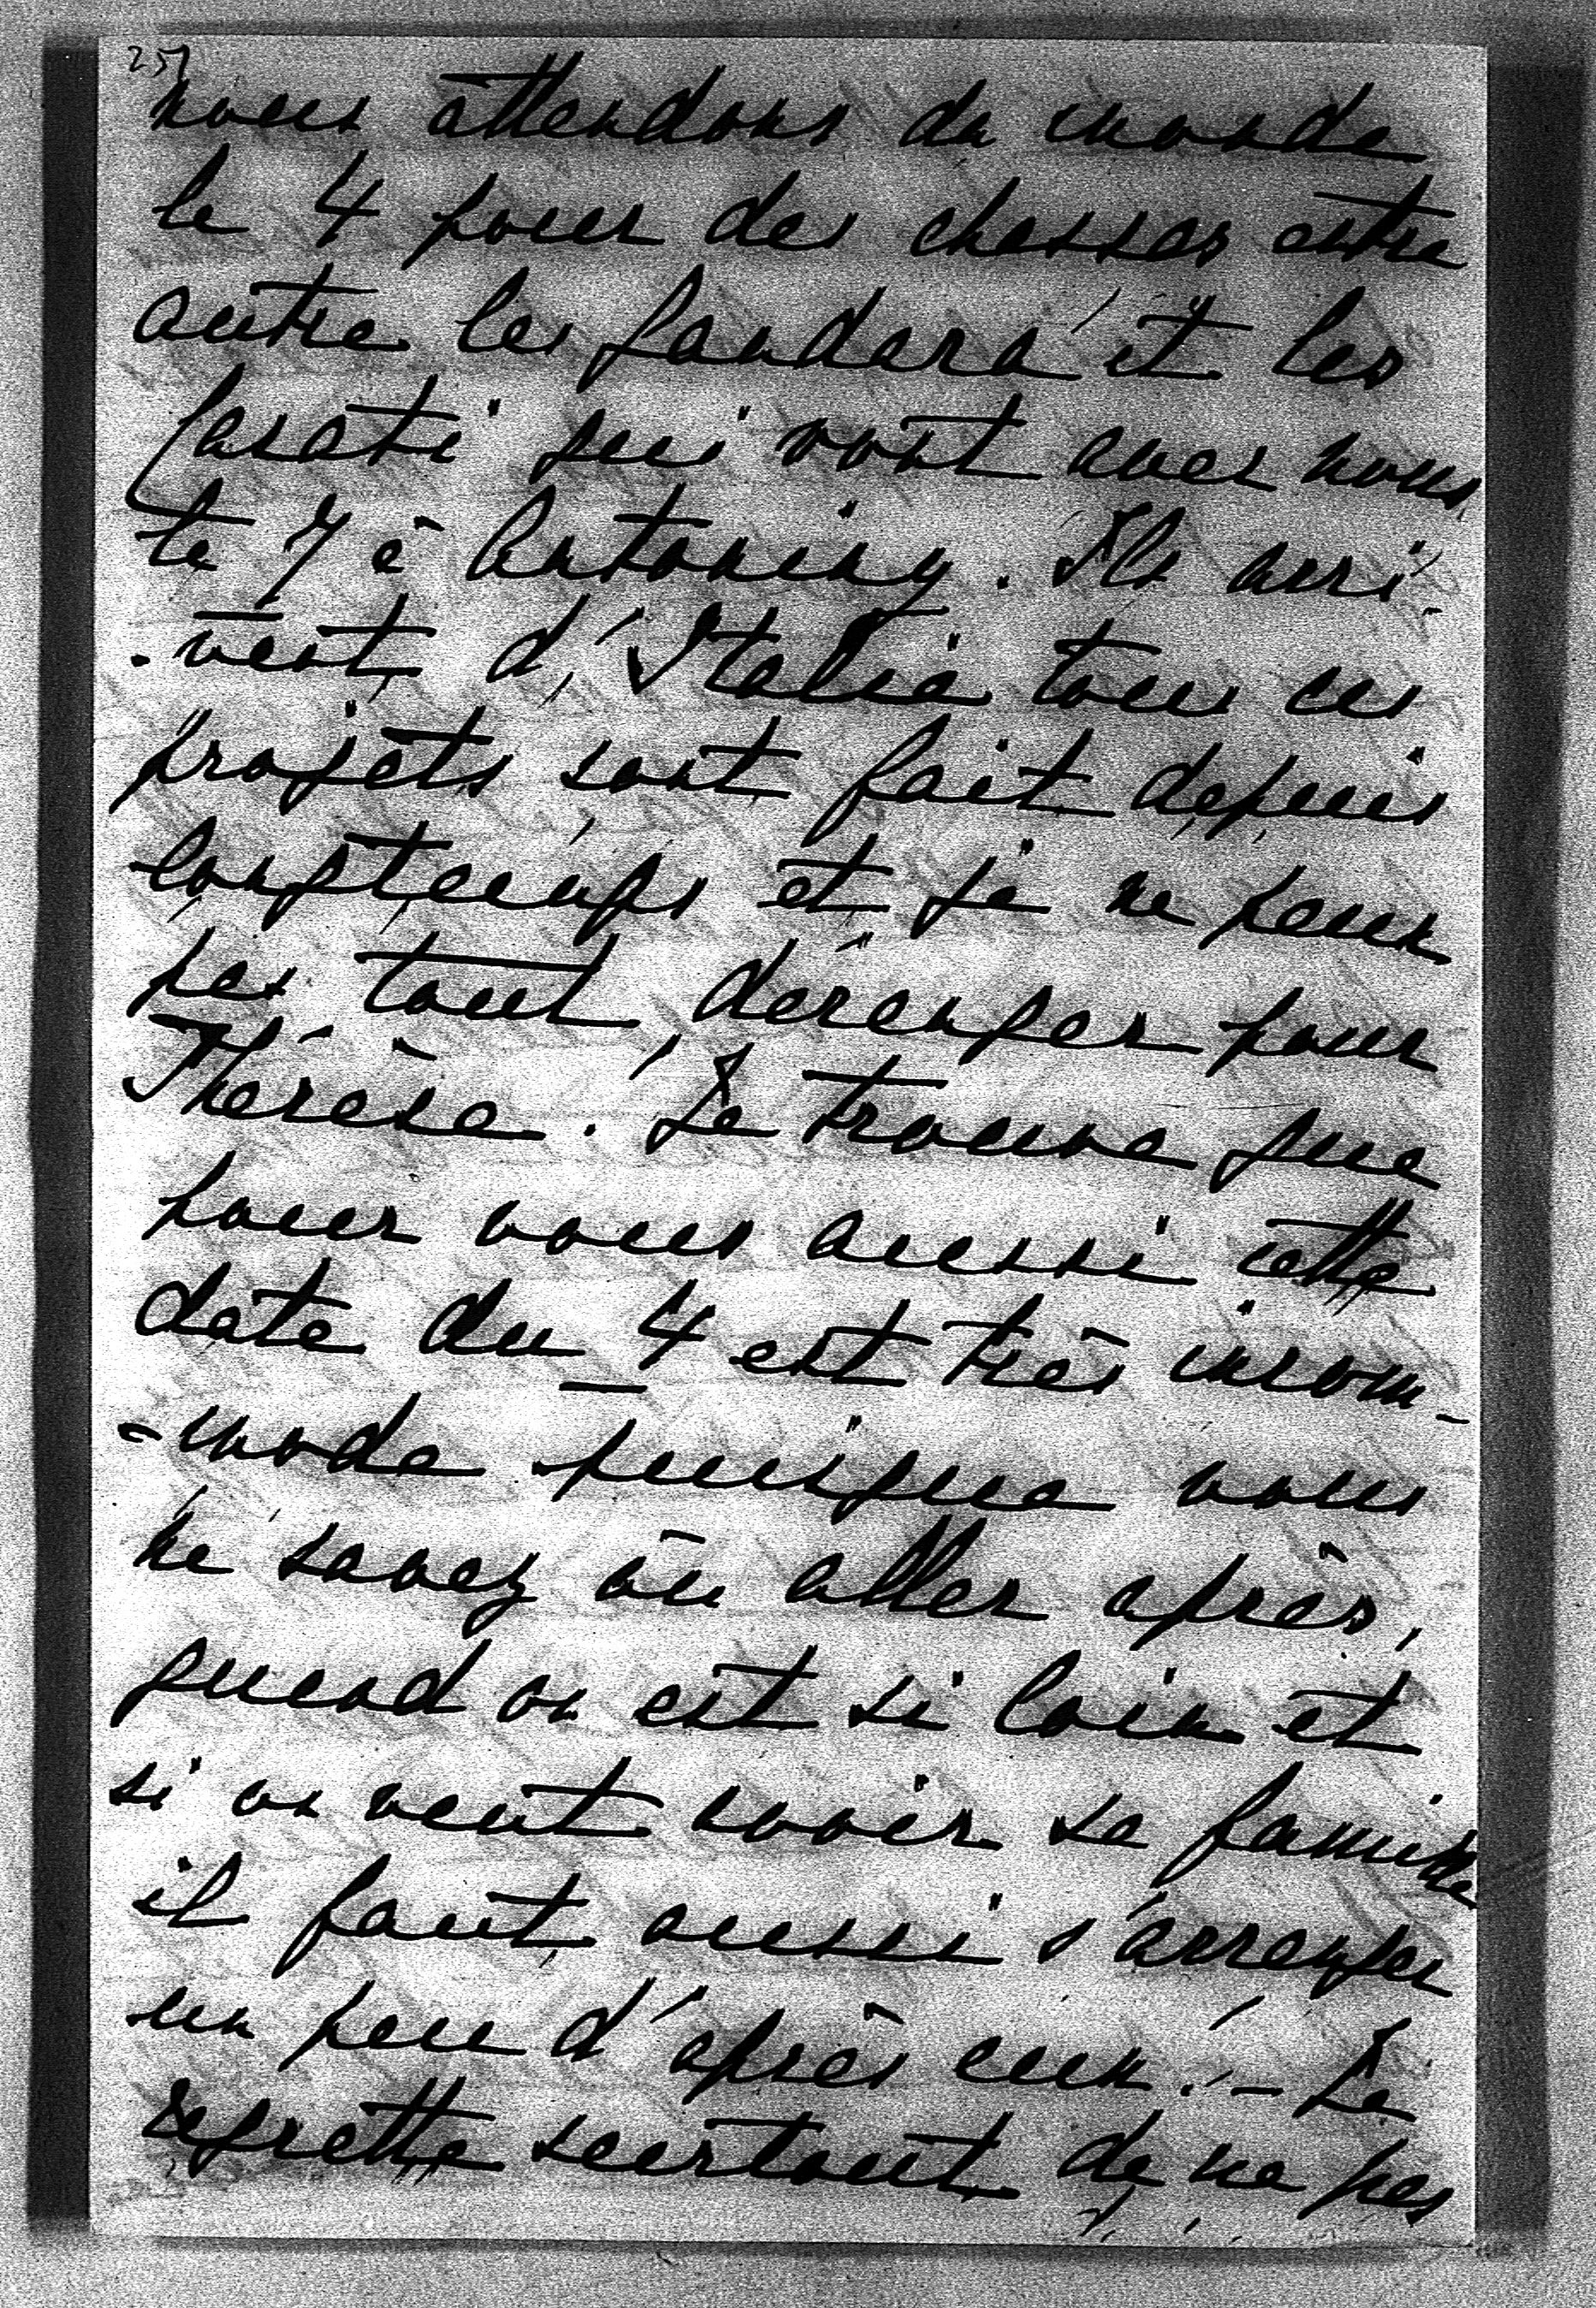 257
nous attendons du monde
le 4 pour des chasses entre
autre les Jandara et les
Casati qui vont avec nous
le 7 à Antoniny. Ils arri-
-vent d'Italie tous ces
projets sont fait depuis
longtemps et je ne peux
pas tout déranger pour
Thérèse. Je trouve que
pour vous aussi cette
date du 4 est très incom-
-mode puisque vous
ne savez où aller après,
quand on est si loin et
si on veut avoir sa famille
il faut aussi s'arranger
un peu d'après eux. - Je
regrette surtout de ne pas